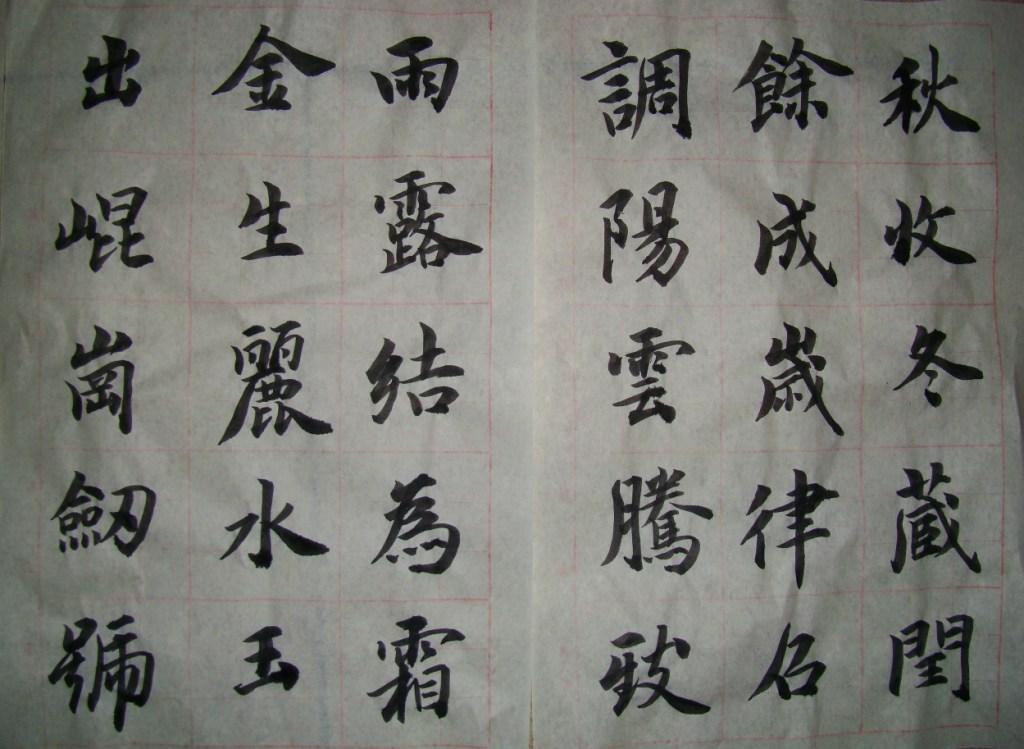 秋收冬蔵閏
餘成歲律召
調陽雲騰致
雨露結為霜
金生麗水玉
出崐崗劒號